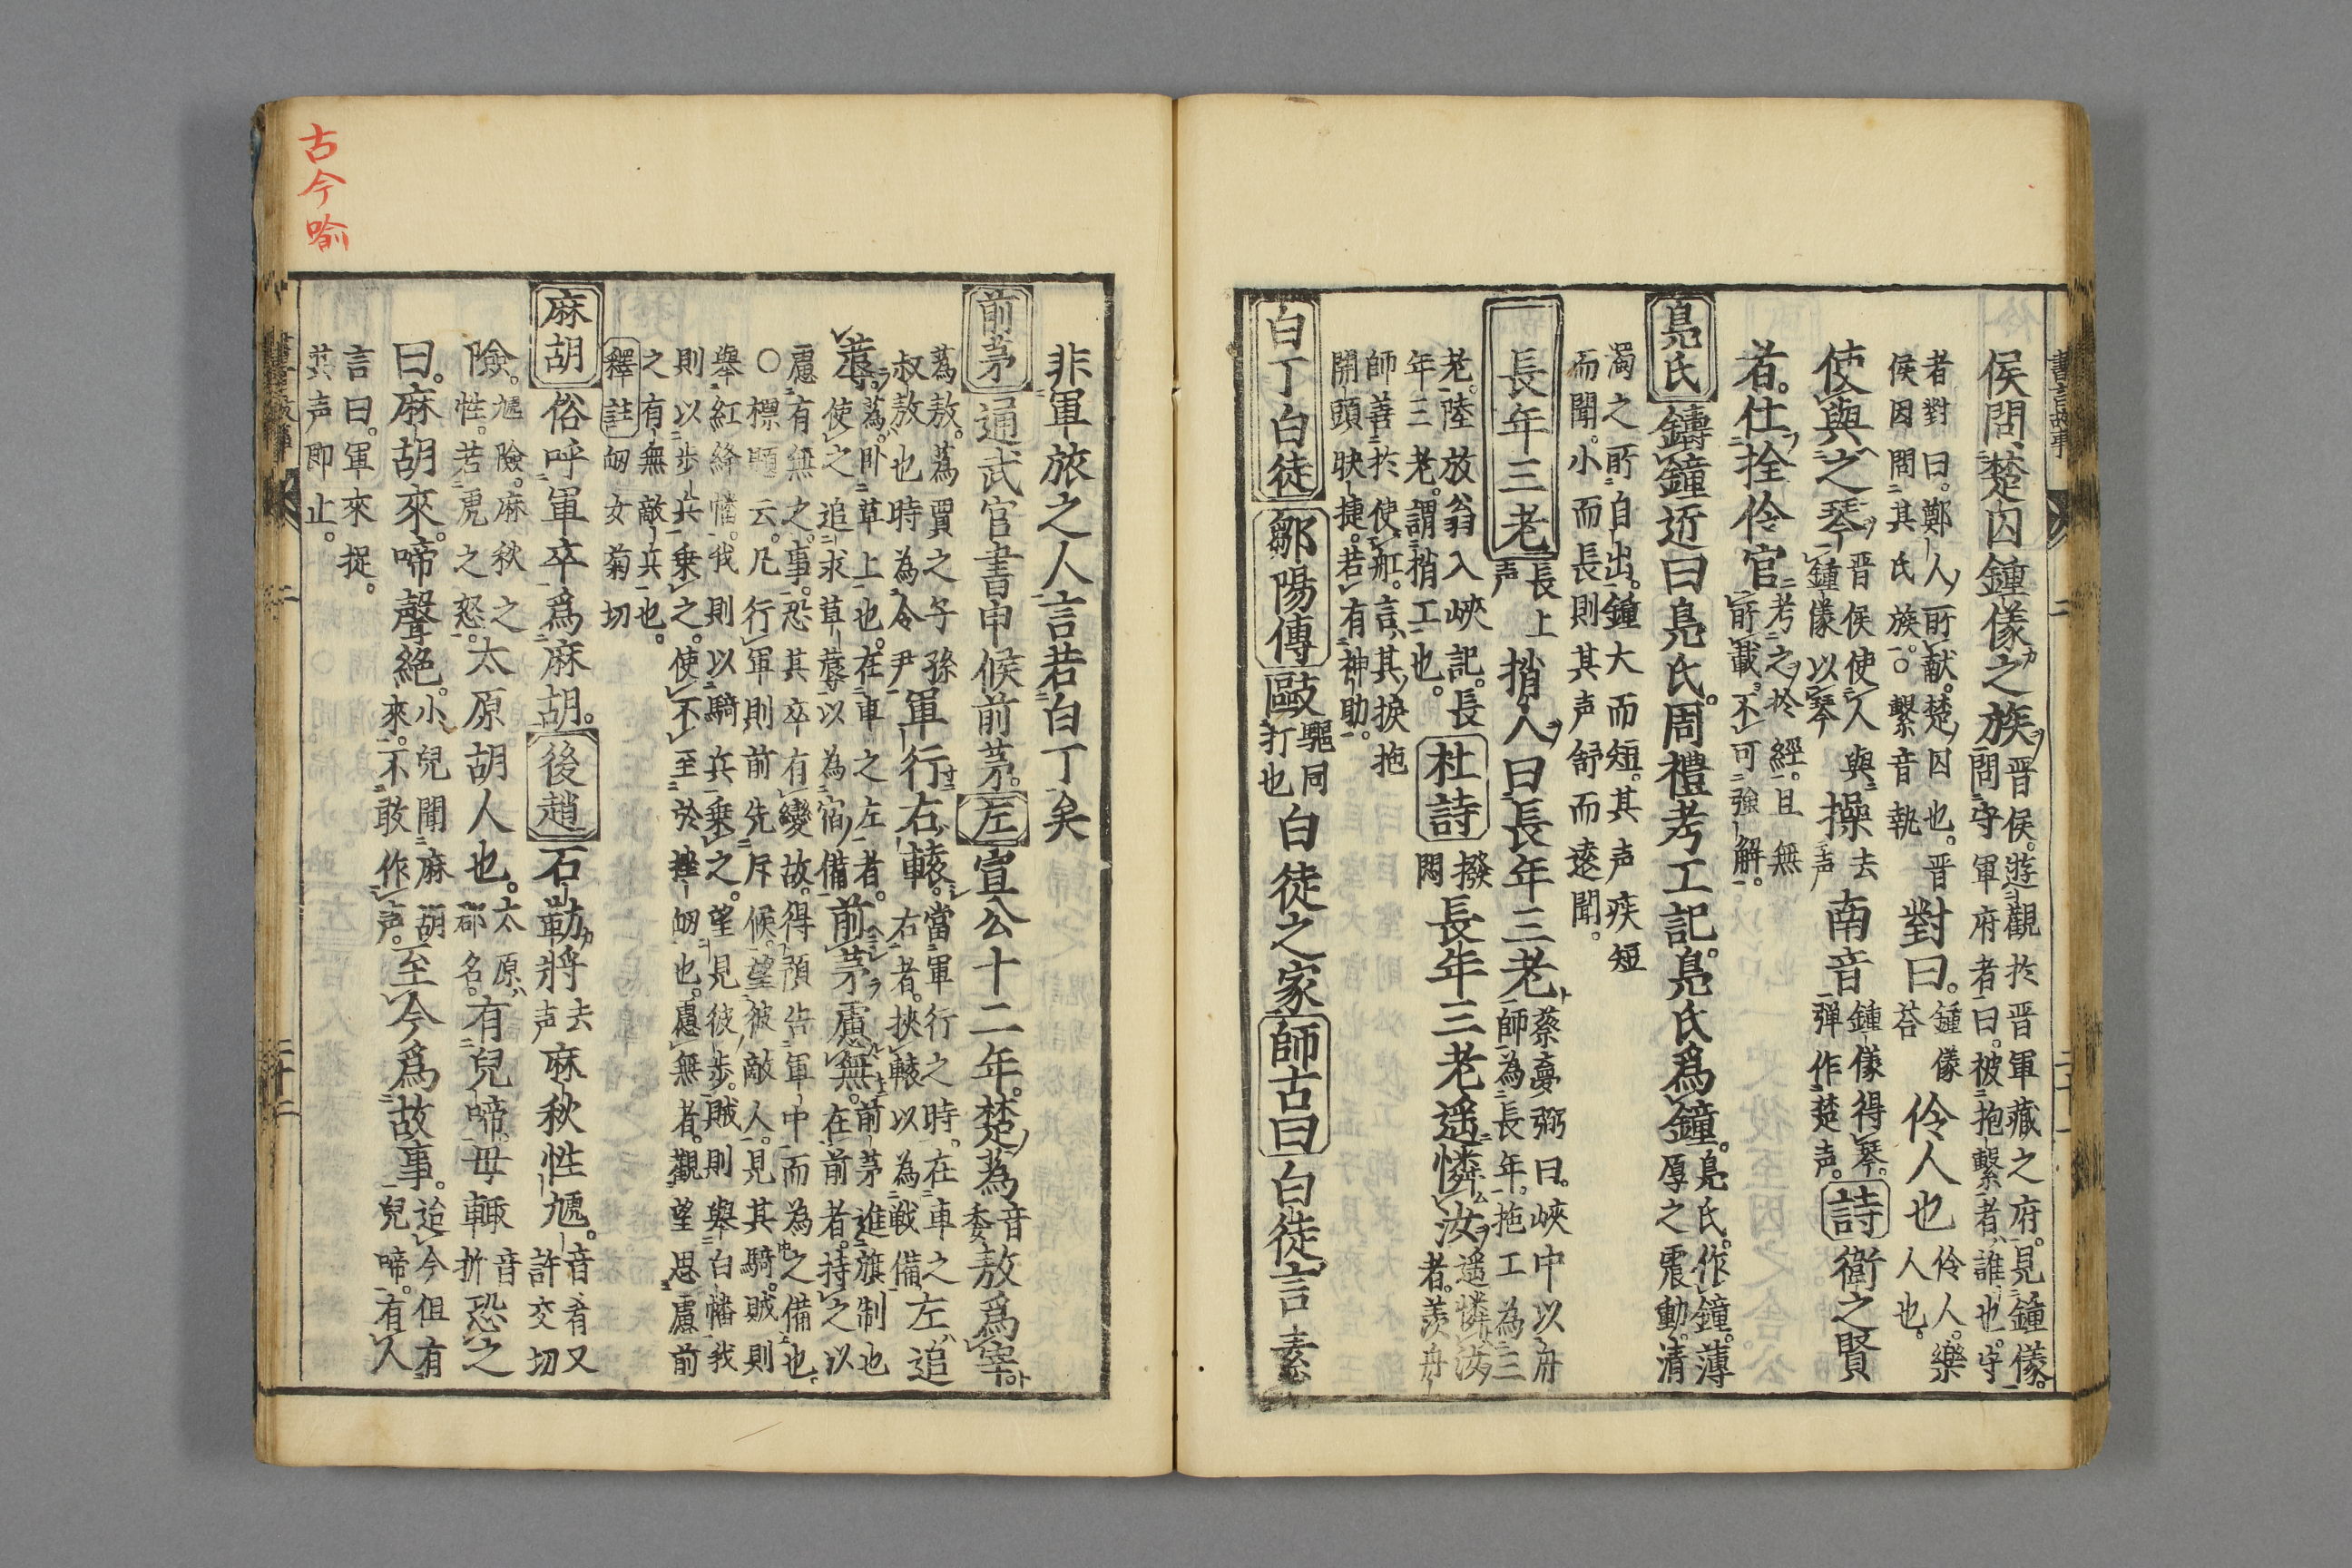 侯問楚囚鍾儀之族晋侯遊觀於晋軍藏之府見鐘儀
問守軍府者曰被抱繫者誰也守
者對曰鄭人所献楚囚也晋
侯因問其氏族○繫音執
對曰鍾儀
荅
伶人也伶人樂
人也
使與之琴晋侯使人與
鍾儀以琴
操去
声
南音鍾儀得琴
弾作楚声
詩衛之賢
者仕於伶官考之於經且無
所載不可強解
鳧氏鑄鐘近曰鳧氏周禮考工記鳧氏爲鐘鳧氏作鐘薄
厚之震動清
濁之所自出鐘大而短其声疾短
而聞小而長則其声舒而遠聞
長年三老長上
声
捎人曰長年三老蔡夢弼曰峽中以舟
師為長年拖工為三
老陸放翁入峽記長
年三老謂捎工也
杜詩撥
悶
長年三老遥憐汝遥憐汝
者羨舟
師善於使舡言其捩拖
開頭駃捷若有神助
白丁白徒鄒陽傳敺驅同
打也
白徒之家師古曰白徒言素
非軍旅之人言若白丁矣
前茅通武官書申候前茅左宣公十二年楚蒍音
委
敖爲宰
蒍敖蒍賈之子孫
叔敖也時為令尹
軍行右轅當軍行之時在車之
右者挾轅以為戦備
左追
蓐蒍卧草上也在車之左者
使之追求草蓐以為宿備
前茅慮無前茅進旗制也
在前者持之以
慮有無之事恐其卒有變故得預告軍中而為之備也
○標題云凡行軍則前先斥候望彼敵人見其騎賊則
舉紅絳幡我則以騎兵乗之望見彼步賊則舉白幡我
則以步兵乗之使不至於挫衂也慮無者觀望思慮前
之有無敵兵也
釋註衂女菊切
麻胡俗呼軍卒爲麻胡後趙石勒將去
声
麻秋性虓音肴又
許交切
險虓險麻秋之
性若虎之怒
太原胡人也太原
郡名
有兒啼母輒音
折
恐之
曰麻胡來啼聲絶小兒聞麻胡
來不敢作声
至今爲故事迨今但有
兒啼有人
言曰軍來捉
其声即止
古今喻